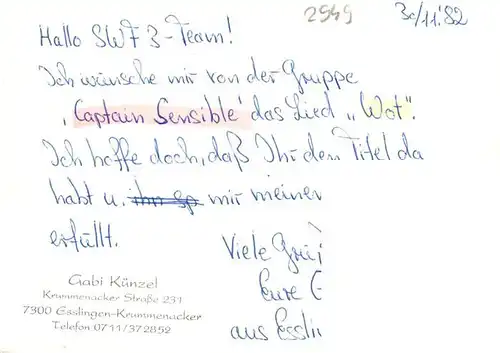 2949 30/11.'82
Hallo SWF 3-Team!
Ich wünsche mir von der Gruppe
,Captain Sensible' das Lied „Wot".
Ich hoffe doch, daß Ihr den Titel da
habt u. ihn sp mir meinen
erfüllt.
Viele Grü
Eure G
aus Essli
Gabi Künzel
Krummenacker Straße 231
7300 Esslingen-Krummenacker
Telefon 0711/372852